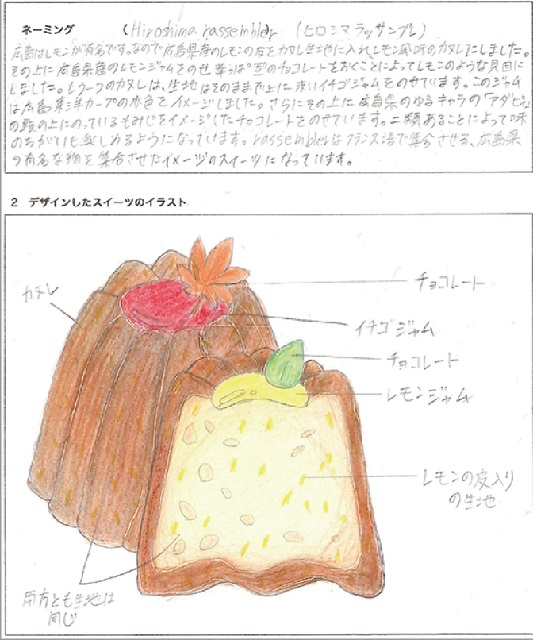 ネーミング (Hiroshima rassembler (ヒロシマラッサンブレ)
広島はレモンが有名です。なので広島県産のレモンの皮をカヌレ生地に入れレモン風味のカヌレにしました。
その上に広島県産のレモンジャムをのせ葉っぱ型のチョコレートをおくことによってレモンのような見た目に
しました。もう一つのカヌレは、生地はそのままで上に赤いイチゴジャムをのせています。このジャム
は広島東洋カープの赤色をイメージしました。さらにその上に広島県のゆるキャラの
の頭の上にのっているもみじをイメージしたチョコレートをのせています。二種類あることによって味
のちがいも楽しめるようになっています。rassemblerはフランス語で集合させる、広島県
の有名な物を集合させたイメージのスイーツになっています。
2 デザインしたスイーツのイラスト
チョコレート
カヌレ
イチゴジャム
チョコレート
レモンジャム
レモンの皮入り
の生地
両方とも生地は
同じ